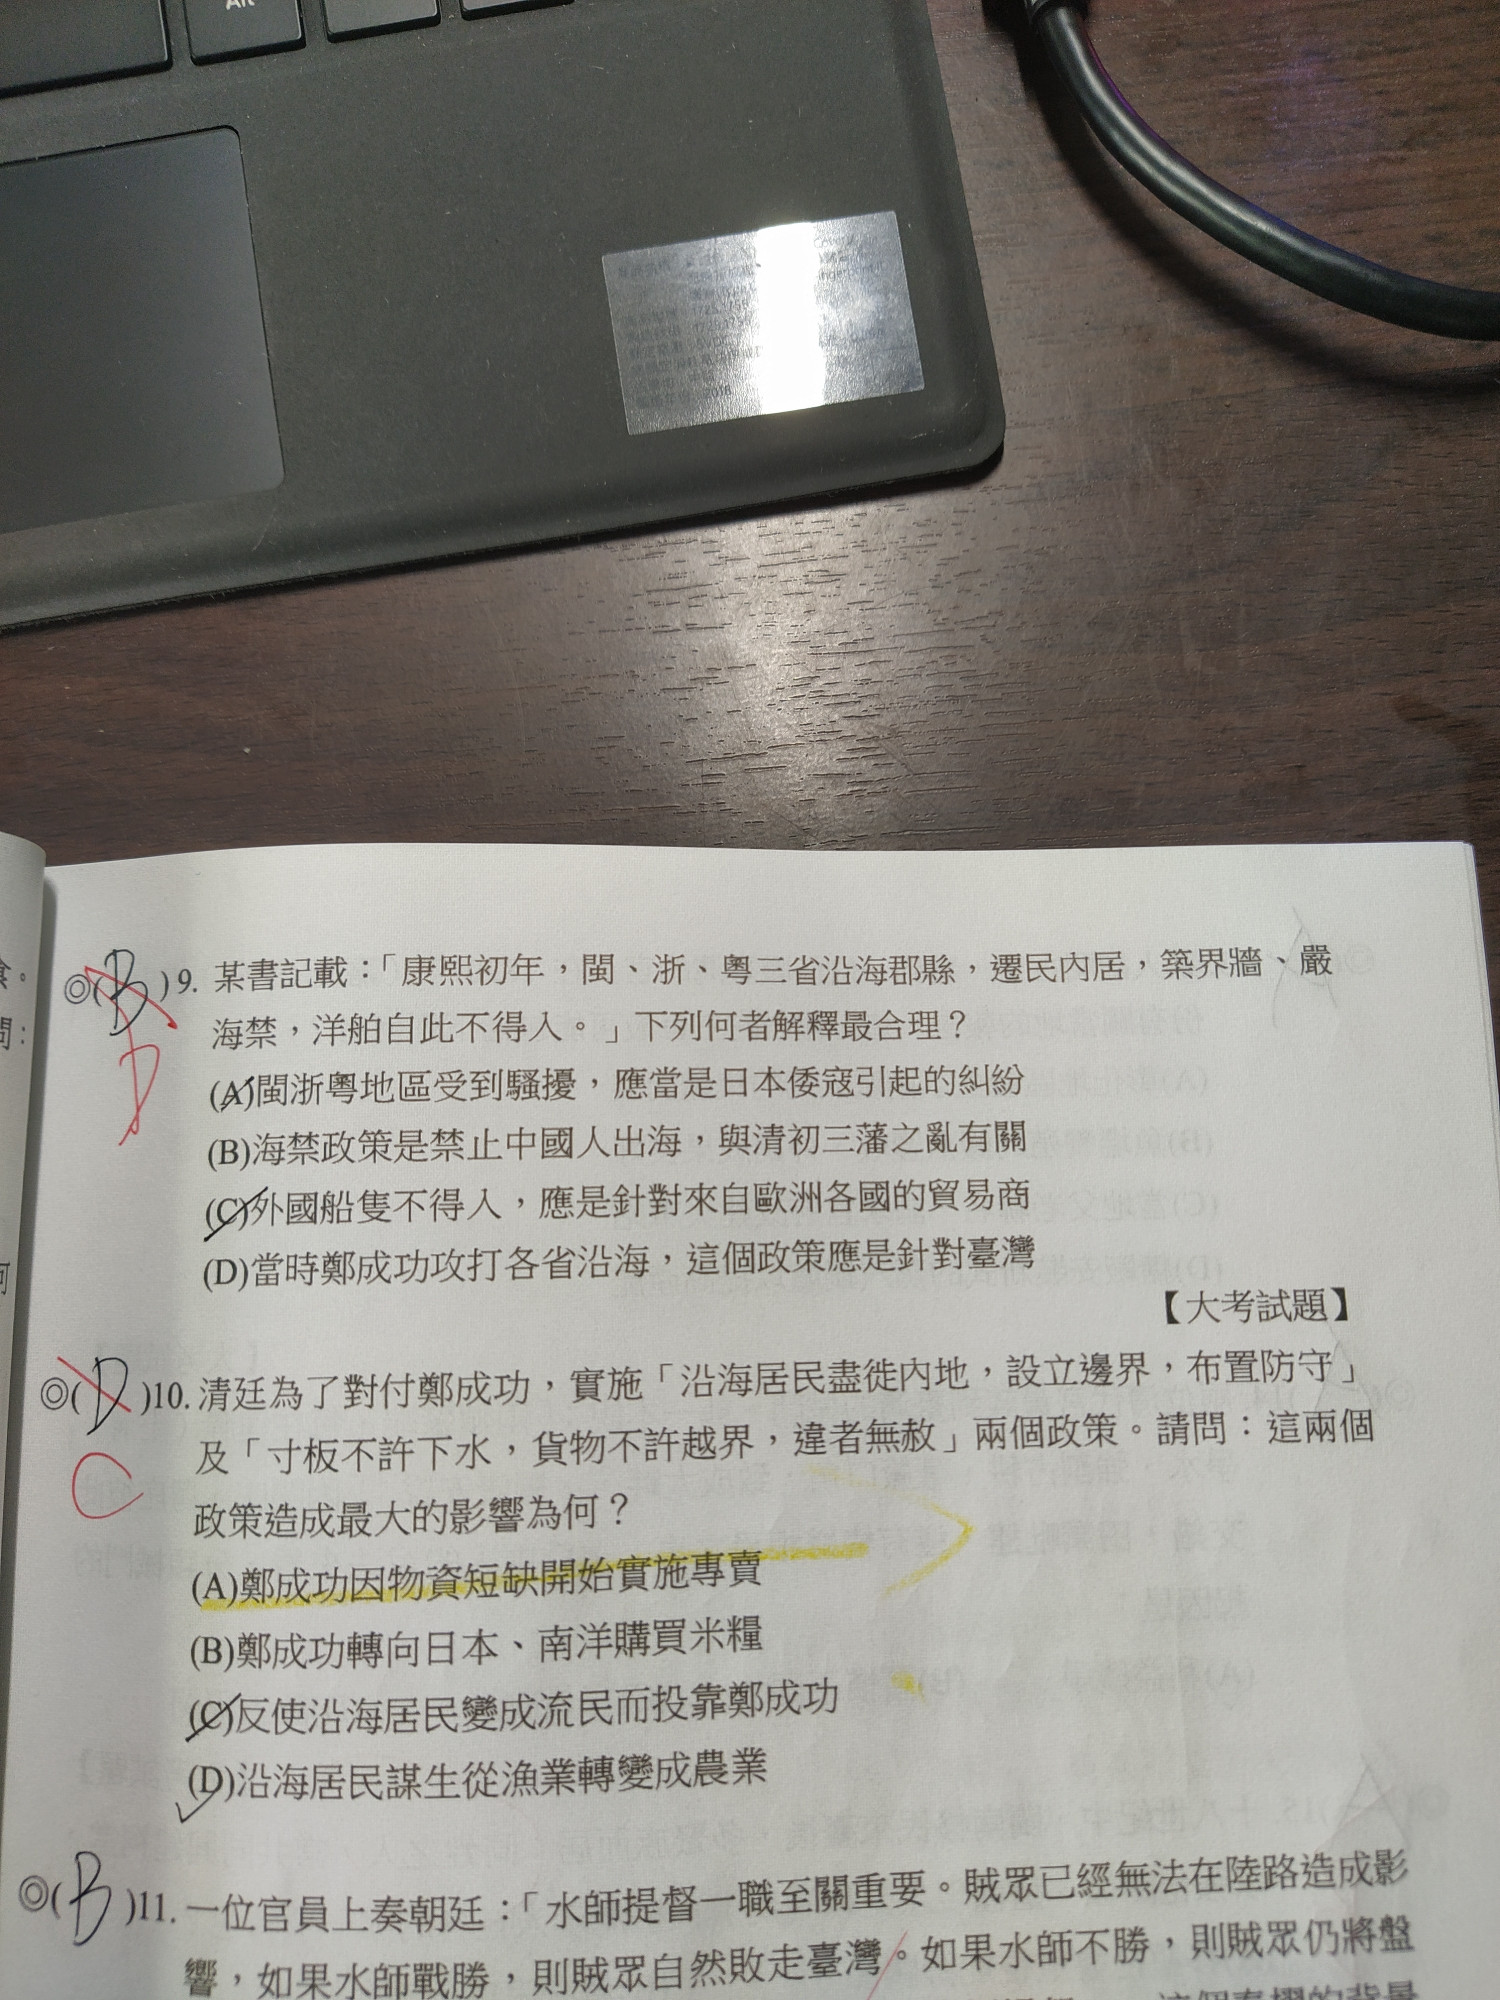 Alt
2018
◎(B)9. 某書記載：「康熙初年，閩、浙、粵三省沿海郡縣，遷民內居，築界牆、嚴
海禁，洋舶自此不得入。」下列何者解釋最合理？
D
(A)閩浙粵地區受到騷擾，應當是日本倭寇引起的糾紛
(B)海禁政策是禁止中國人出海，與清初三藩之亂有關
(C)外國船隻不得入，應是針對來自歐洲各國的貿易商
(D)當時鄭成功攻打各省沿海，這個政策應是針對臺灣
【大考試題】
◎(D)10. 清廷為了對付鄭成功，實施「沿海居民盡徙內地，設立邊界，布置防守」
及「寸板不許下水，貨物不許越界，違者無赦」兩個政策。請問：這兩個
C
政策造成最大的影響為何？
(A)鄭成功因物資短缺開始實施專賣
(B)鄭成功轉向日本、南洋購買米糧
(C)反使沿海居民變成流民而投靠鄭成功
(D)沿海居民謀生從漁業轉變成農業
◎(B)11. 一位官員上奏朝廷：「水師提督一職至關重要。賊眾已經無法在陸路造成影
響，如果水師戰勝，則賊眾自然敗走臺灣。如果水師不勝，則賊眾仍將盤
這個奏摺的背景